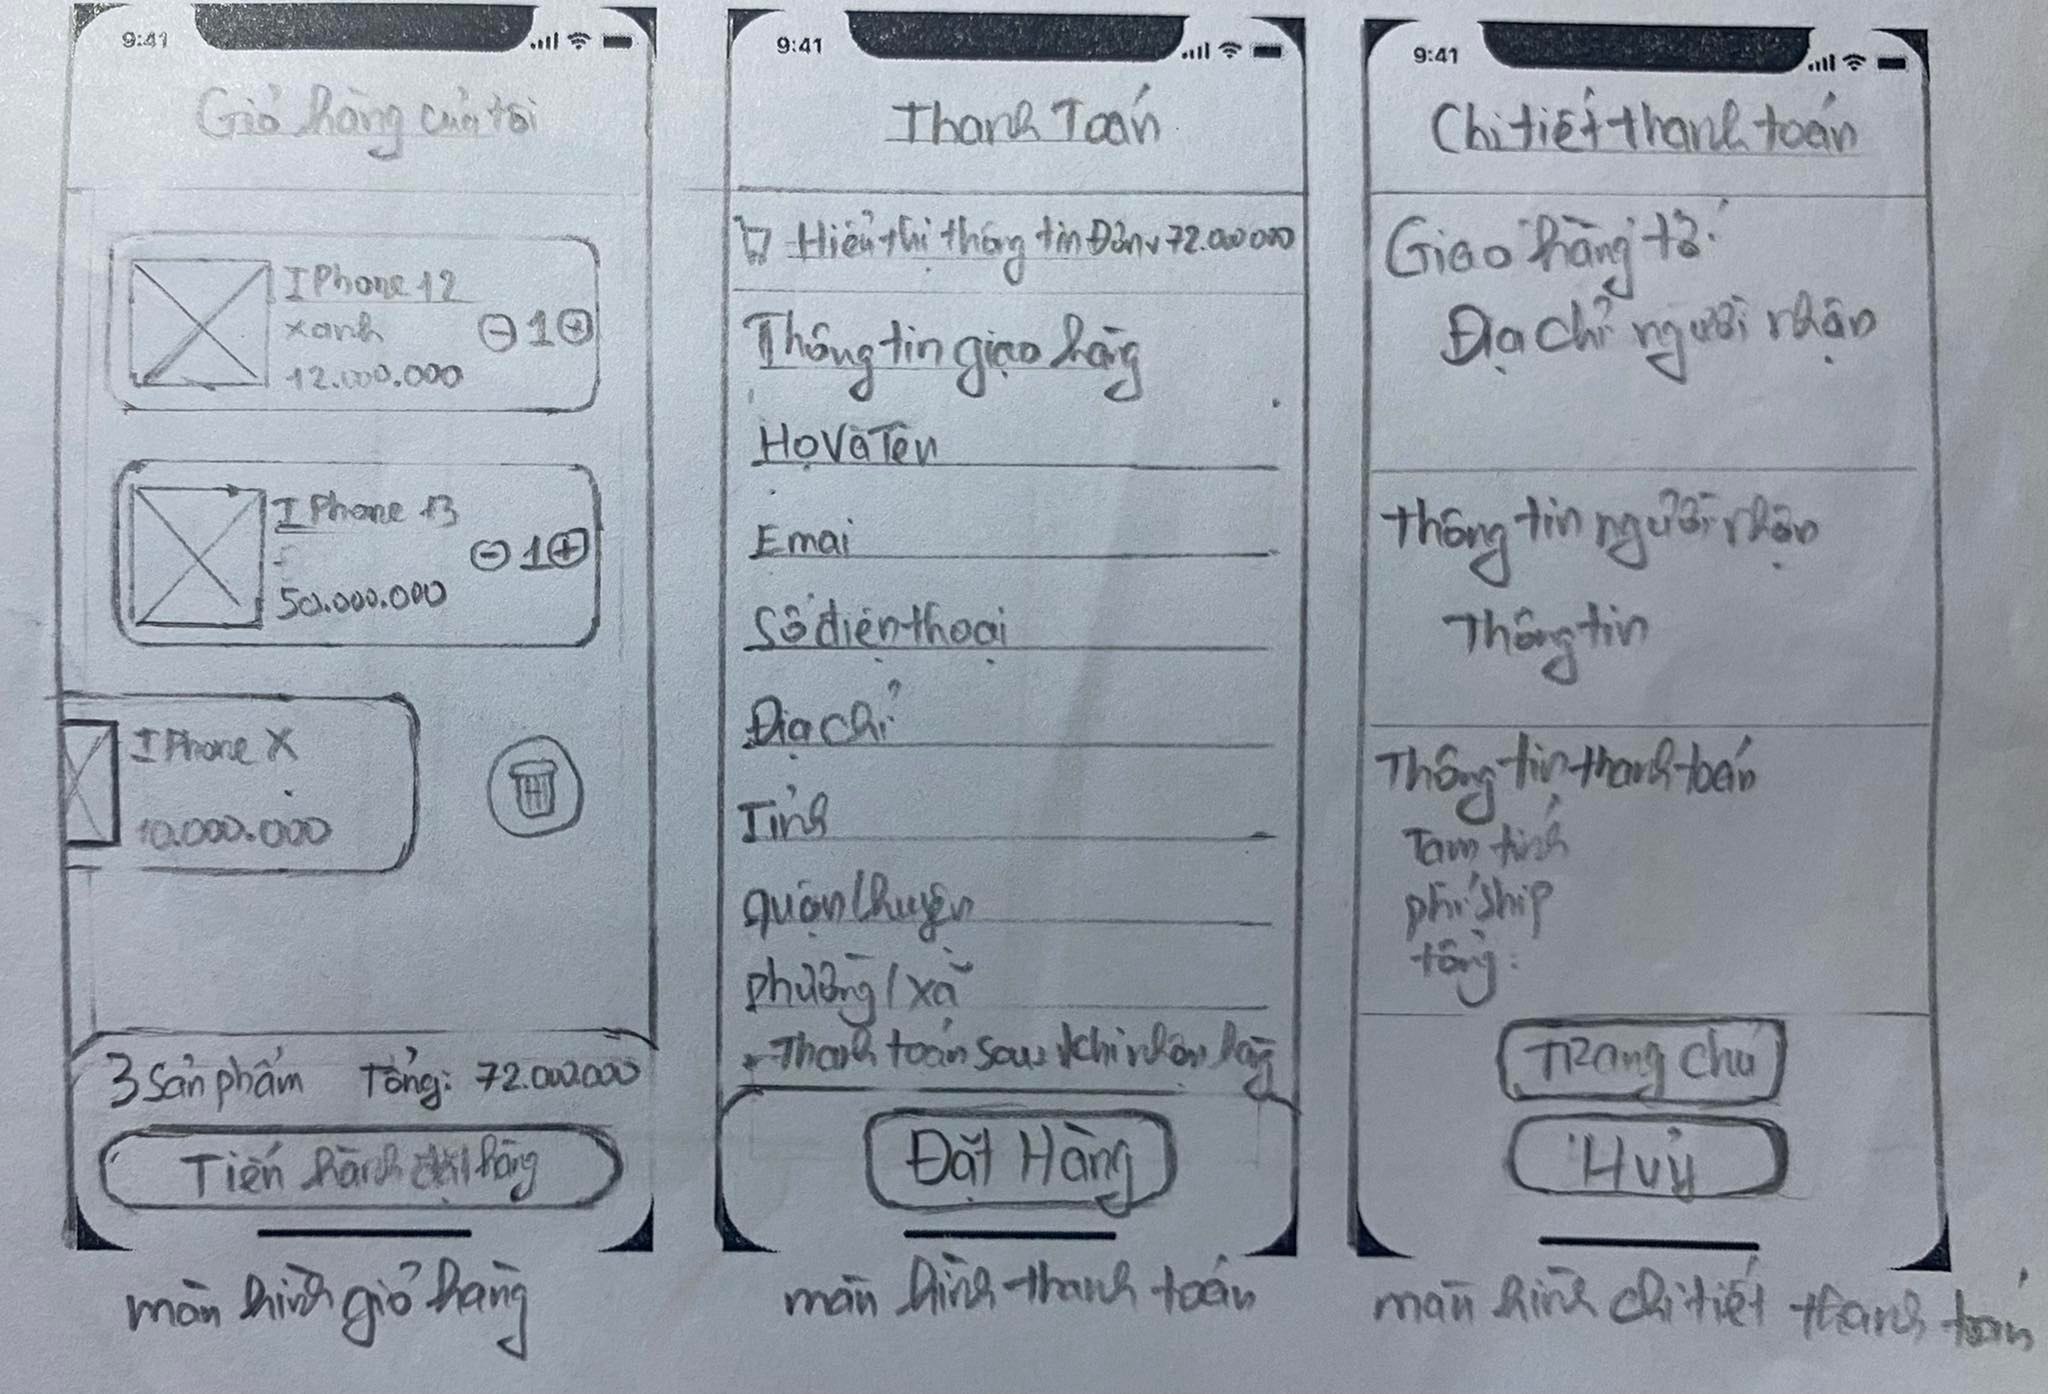 9:41
Giỏ hàng của tôi
IPhone 12
xanh
12.000.000
⊖ 1 ⊕
IPhone 13
50.000.000
⊖ 1 ⊕
IPhone X
10.000.000
3 Sản phẩm Tổng: 72.000.000
Tiến hành đặt hàng
màn hình giỏ hàng
9:41
Thanh Toán
Hiển thị thông tin Đơn v 72.000.000
Thông tin giao hàng
Họ Và Tên
Emai
Số điện thoại
Địa chỉ
Tỉnh
quận/huyện
phường/xã
Thanh toán sau khi nhận hàng
Đặt Hàng
màn hình thanh toán
9:41
Chi tiết thanh toán
Giao hàng tớ:
Địa chỉ người nhận
thông tin người nhận
Thông tin
Thông tin thanh toán
Tam tính
phí ship
tổng:
Trang chủ
Huỷ
màn hình chi tiết thanh toán